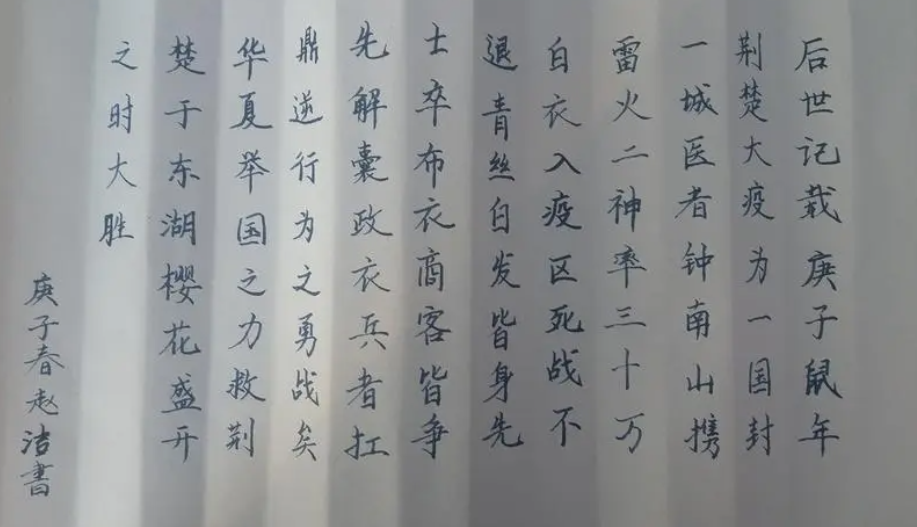 后世记载庚子鼠年
荆楚大疫为一国封
一城医者钟南山携
雷火二神率三十万
白衣入疫区死战不
退青丝白发皆身先
士卒布衣商客皆争
先解囊政衣兵者扛
鼎逆行为之勇战矣
华夏举国之力救荆
楚于东湖樱花盛开
之时大胜
庚子春赵洁書